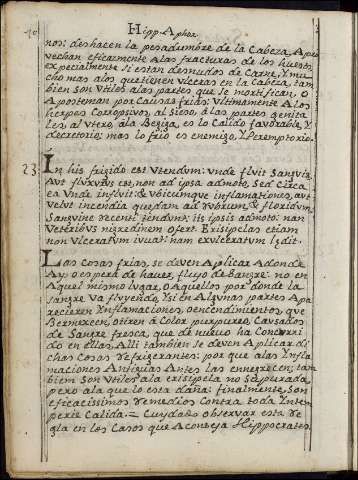 40
Hipp. Aphor.
nos: deshacen la pesadumbre de la Cabeza, Apro
vechan eficazmente Alas fracturas de los huesos,
expecialmente si estan desnudos de Carne, Y mu
cho mas alos que tienen ulceras en la Cabeza, tam
bien son Vtiles alas partes, que se mortifican, O
Aposteman por causa frias: Vltimamente Alos
herpes Corrosivos, al sieso, alas partes genita
les, al Vtero, ala Begiga, es lo Calido favorable, Y
decretorio: mas lo frio es enemigo, Y Peremptorio.
23.
In his frigido est Vtendum: unde fluit Sanguis,
Aut fluxurus est, non ad ipsa admoto, Sed circa
ea Vnde influit: ubicumque inflamationes, aut
velut incendia quedam ad rubrum, & floridum
Sanguine recenti tendunt: iis ipsis admoto: nan
Veteribus nigredinem ofert. Erisipelas etiam
non Vlceratum iuvat: nam exulceratum lędit.
Las cosas frias, se deven Aplicar Adonde
Ay, o espera de haver, fluxo de Sangre: no en
Aquel mismo lugar, o Aquellos por donde la
sangre va fluyendo, Y si en Algunas partes Apa
recieren Ynflamaciones, o encendimientos, que
Bermexeen, o tiren à Color purpureo, Causados
de Sangre fresca, que de nuevo ha Concurri
do en ellas, Alli tambien se deven Aplicar di
chas Cosas refrigerantes: por que alas Infla
maciones Antiguas Antes las ennegrecen; tam
bien son Vtiles ala erisipela no Vlcerada,
pero ala que lo esta daña: finalmente, son
eficacissimos remedios contra toda Intem
perie Calida. = Cuydado observar esta re
gla en los Casos que Aconseja Hippocrates.